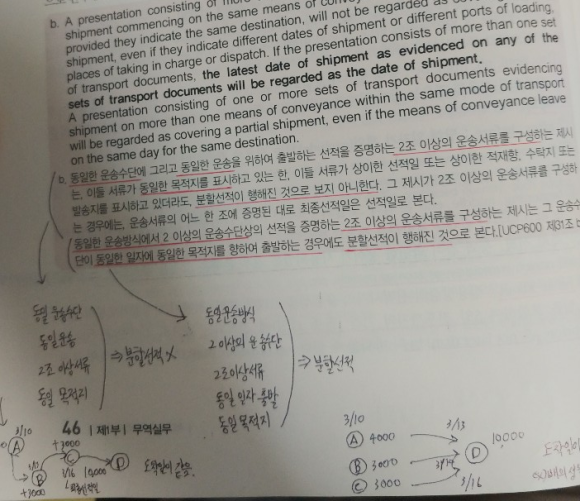 b. A presentation consisting of more
shipment commencing on the same means of
provided they indicate the same destination, will not be regarded as
shipment, even if they indicate different dates of shipment or different ports of loading,
places of taking in charge or dispatch. If the presentation consists of more than one set
of transport documents, the latest date of shipment as evidenced on any of the
sets of transport documents will be regarded as the date of shipment.
A presentation consisting of one or more sets of transport documents evidencing
shipment on more than one means of conveyance within the same mode of transport
will be regarded as covering a partial shipment, even if the means of conveyance leave
on the same day for the same destination.
b. 동일한 운송수단에 그리고 동일한 운송을 위하여 출발하는 선적을 증명하는 2조 이상의 운송서류를 구성하는 제시
는, 이들 서류가 동일한 목적지를 표시하고 있는 한, 이들 서류가 상이한 선적일 또는 상이한 적재항, 수탁지 또는
발송지를 표시하고 있더라도, 분할선적이 행해진 것으로 보지 아니한다. 그 제시가 2조 이상의 운송서류를 구성하
는 경우에는, 운송서류의 어느 한 조에 증명된 대로 최종선적일은 선적일로 본다.
동일한 운송방식에서 2 이상의 운송수단상의 선적을 증명하는 2조 이상의 운송서류를 구성하는 제시는 그 운송수
단이 동일한 일자에 동일한 목적지를 향하여 출발하는 경우에도 분할선적이 행해진 것으로 본다.[UCP600 제31조
동일 운송수단
동일 운송
2조 이상 서류
동일 목적지
⇒ 분할선적 X
동일 운송방식
2 이상의 운송수단
2조 이상 서류
동일 일자 출발
동일 목적지
⇒ 분할선적
46 | 제1부 | 무역실무
3/10
A
B
+3000
+3000
C
1/16
10,000
D
도착일이 같음.
3/10
A 4000
B 3000
C 3000
3/13
3/16
D
10,000
도착일이